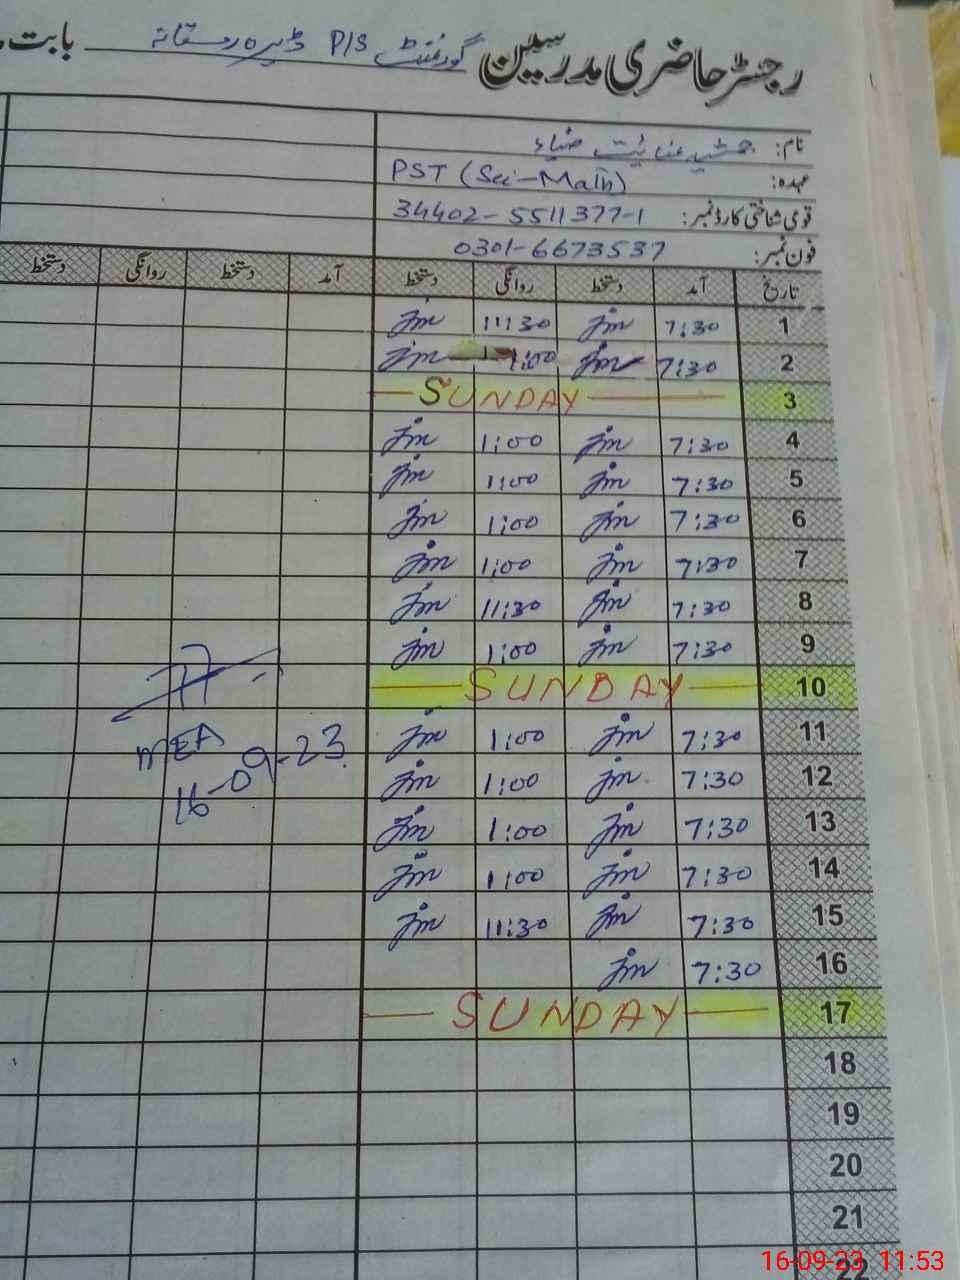 رجسٹر حاضری مدرسین گورنمنٹ P/S ڈیرہ بابت
نام: جمشید عنائیت ضیاء
عہدہ: PST (Sci-Math)
قومی شناختی کارڈ نمبر: 34402-5511377-1
فون نمبر: 0301-6673537
تاریخ آمد دستخط روانگی دستخط آمد دستخط روانگی دستخط
1 7:30 Jm 11:30 Jm
2 7:30 Jm 1:00 Jm
3 SUNDAY
4 7:30 Jm 1:00 Jm
5 7:30 Jm 1:00 Jm
6 7:30 Jm 1:00 Jm
7 7:30 Jm 1:00 Jm
8 7:30 Jm 11:30 Jm
9 7:30 Jm 1:00 Jm
10 SUNDAY
11 7:30 Jm 1:00 Jm
12 7:30 Jm 1:00 Jm
13 7:30 Jm 1:00 Jm
14 7:30 Jm 1:00 Jm
15 7:30 Jm 11:30 Jm
16 7:30 Jm
17 SUNDAY
18
19
20
21
22
MEA
16-09-23
16-09-23 11:53